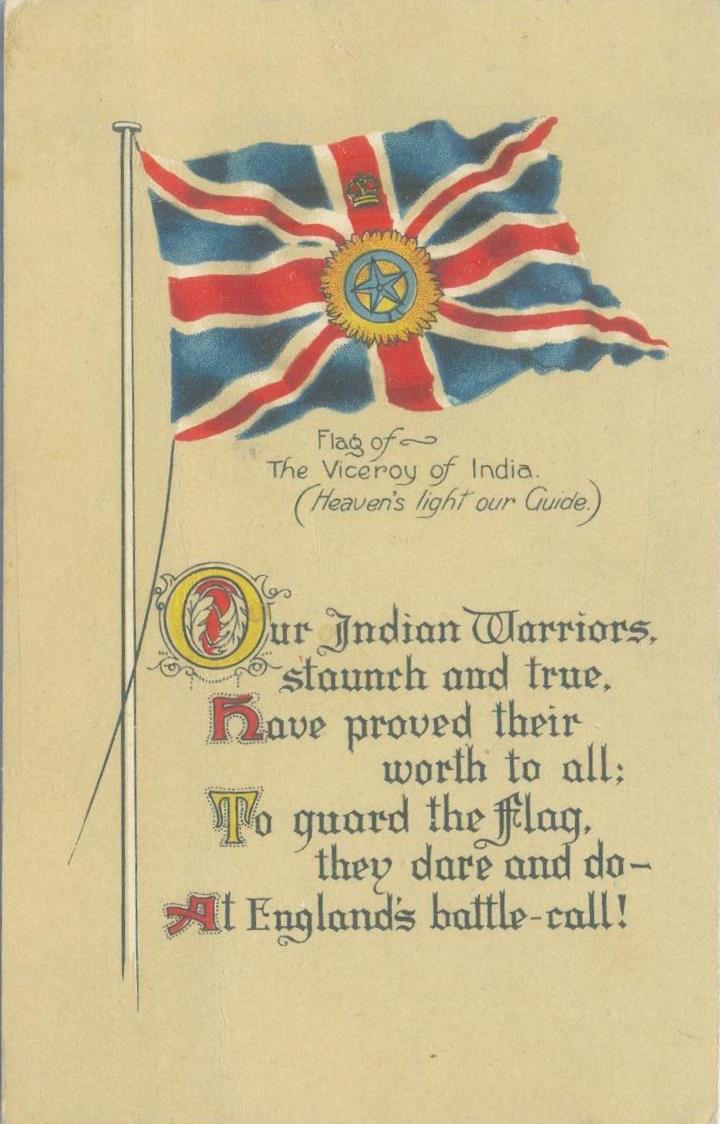 Flag of
The Viceroy of India.
(Heaven's light our Guide.)
Our Indian Warriors,
staunch and true,
Have proved their
worth to all;
To guard the Flag,
they dare and do-
At England's battle-call!